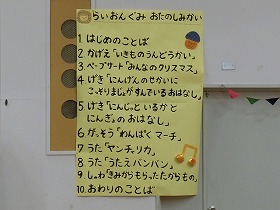 らいおんぐみ おたのしみかい
1 はじめのことば
2 かげえ「いきものうんどうかい」
3 ペープサート「みんなのクリスマス」
4 げき「にんげんのせかいに
こっそりまじょがすんでいるおはなし」
5 げき「にんじゃといるかと
にんぎょのおはなし」
6 がっそう「わんぱくマーチ」
7 うた「ヤンチャリカ」
8 うた「うたえバンバン」
9 しゅわ「きみからもらったたからもの」
10 おわりのことば